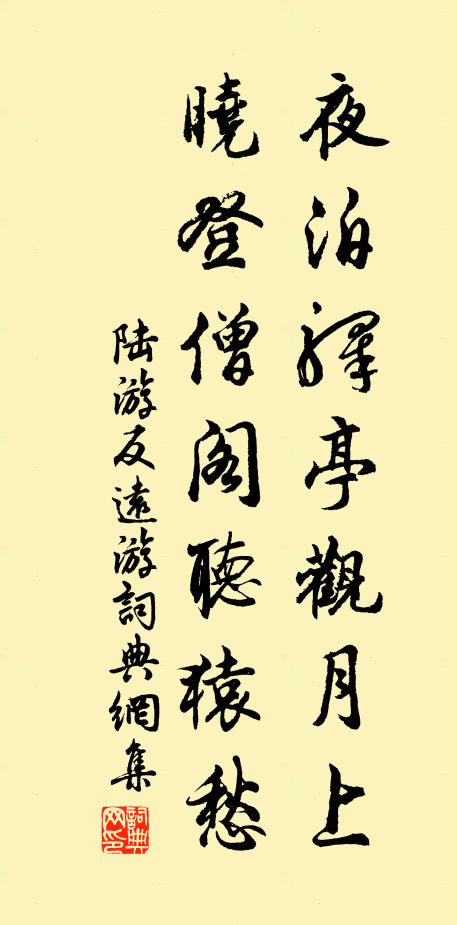 夜泊驛亭觀月上
曉登僧阁聽猿愁
陆游反遠游詞典網集
詞典网印